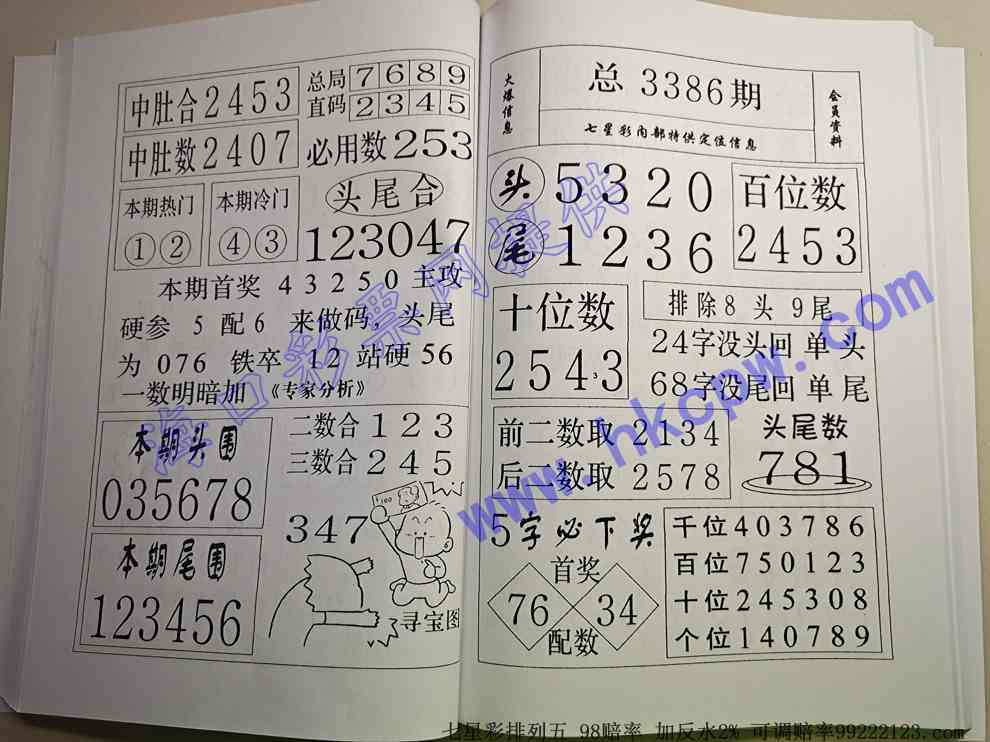 中肚合2453
中肚数2407
总局 7 6 8 9
直码 2 3 4 5
必用数253
本期热门
① ②
本期冷门
④ ③
头尾合
123047
本期首奖 4 3 2 5 0 主攻
硬参 5 配6 来做码，头尾
为 076 铁卒 12 站硬56
一数明暗加 《专家分析》
本期头围
035678
本期尾围
123456
二数合 1 2 3
三数合 2 4 5
347
100
寻宝图
火爆信息
总 3386期
七星彩内部特供定位信息
会员资料
头 5320
尾 1236
百位数
2453
十位数
2543
3
排除8 头 9尾
24字没头回 单 头
68字没尾回 单 尾
前二数取 2134
后二数取 2578
头尾数
781
5字必下奖
首奖
76 34
配数
千位403786
百位750123
十位245308
个位140789
海口彩票网提供
www.hkcpw.com
七星彩排列五 98赔率 加反水2% 可调赔率99222123.com